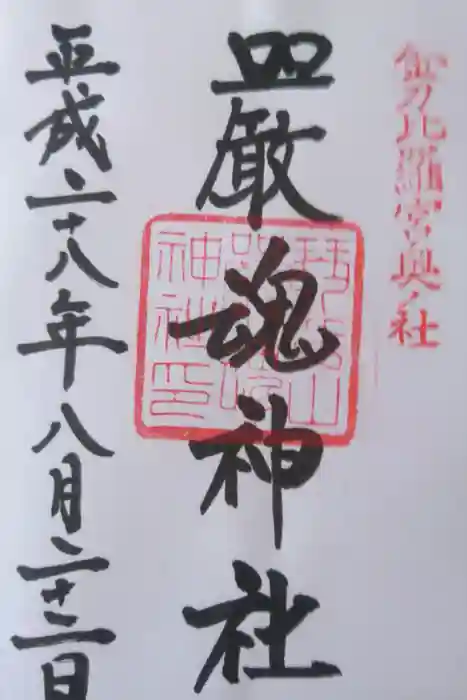 金刀比羅宮奥ノ社
嚴魂神社
神社印
平成二十八年八月二十二日